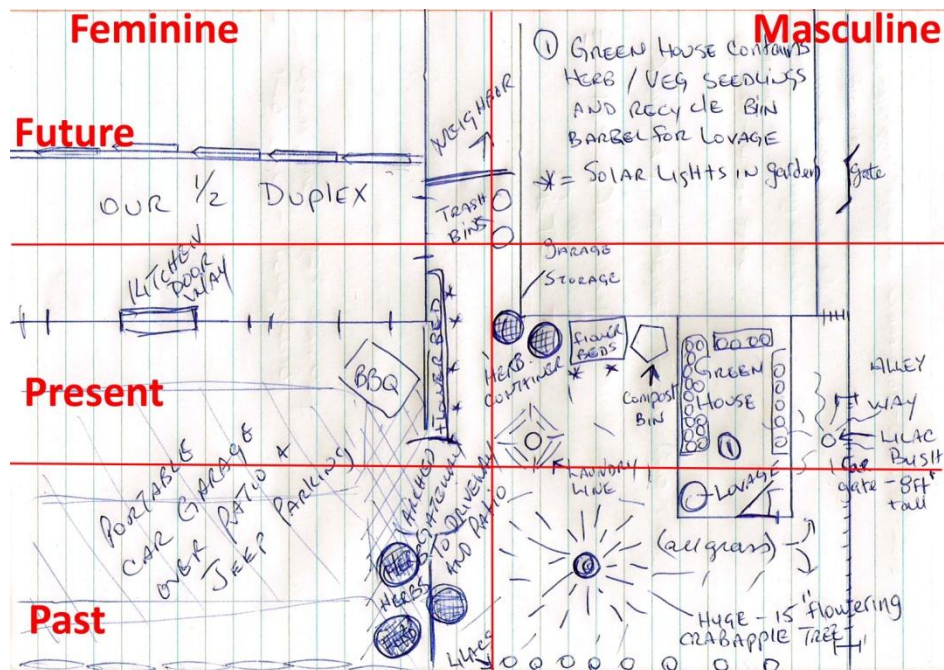 Feminine
Masculine
Future
Present
Past
① GREEN HOUSE Contains
HERB / VEG SEEDLINGS
AND RECYCLE BIN
BARREL FOR LOVAGE
* = SOLAR LIGHTS IN garden
gate
NEIGHBOR
OUR 1/2 DUPLEX
TRASH
BINS
KITCHEN
DOOR
WAY
GARAGE
STORAGE
FLOWER BED
BBQ
HERB
CONTAINER
flower
BEDS
COMPOST
BIN
GREEN
HOUSE
①
ALLEY
WAY
LILAC
BUSH
gate - 8ft
tall
LAUNDRY
LINE
LOVAGE
PORTABLE
CAR GARAGE
OVER PATIO &
JEEP PARKING
ARCHED
GATEWAY
TO DRIVEWAY
AND PATIO
HERBS
(all grass)
HUGE - 15" flowering
CRABAPPLE TREE
LILACS